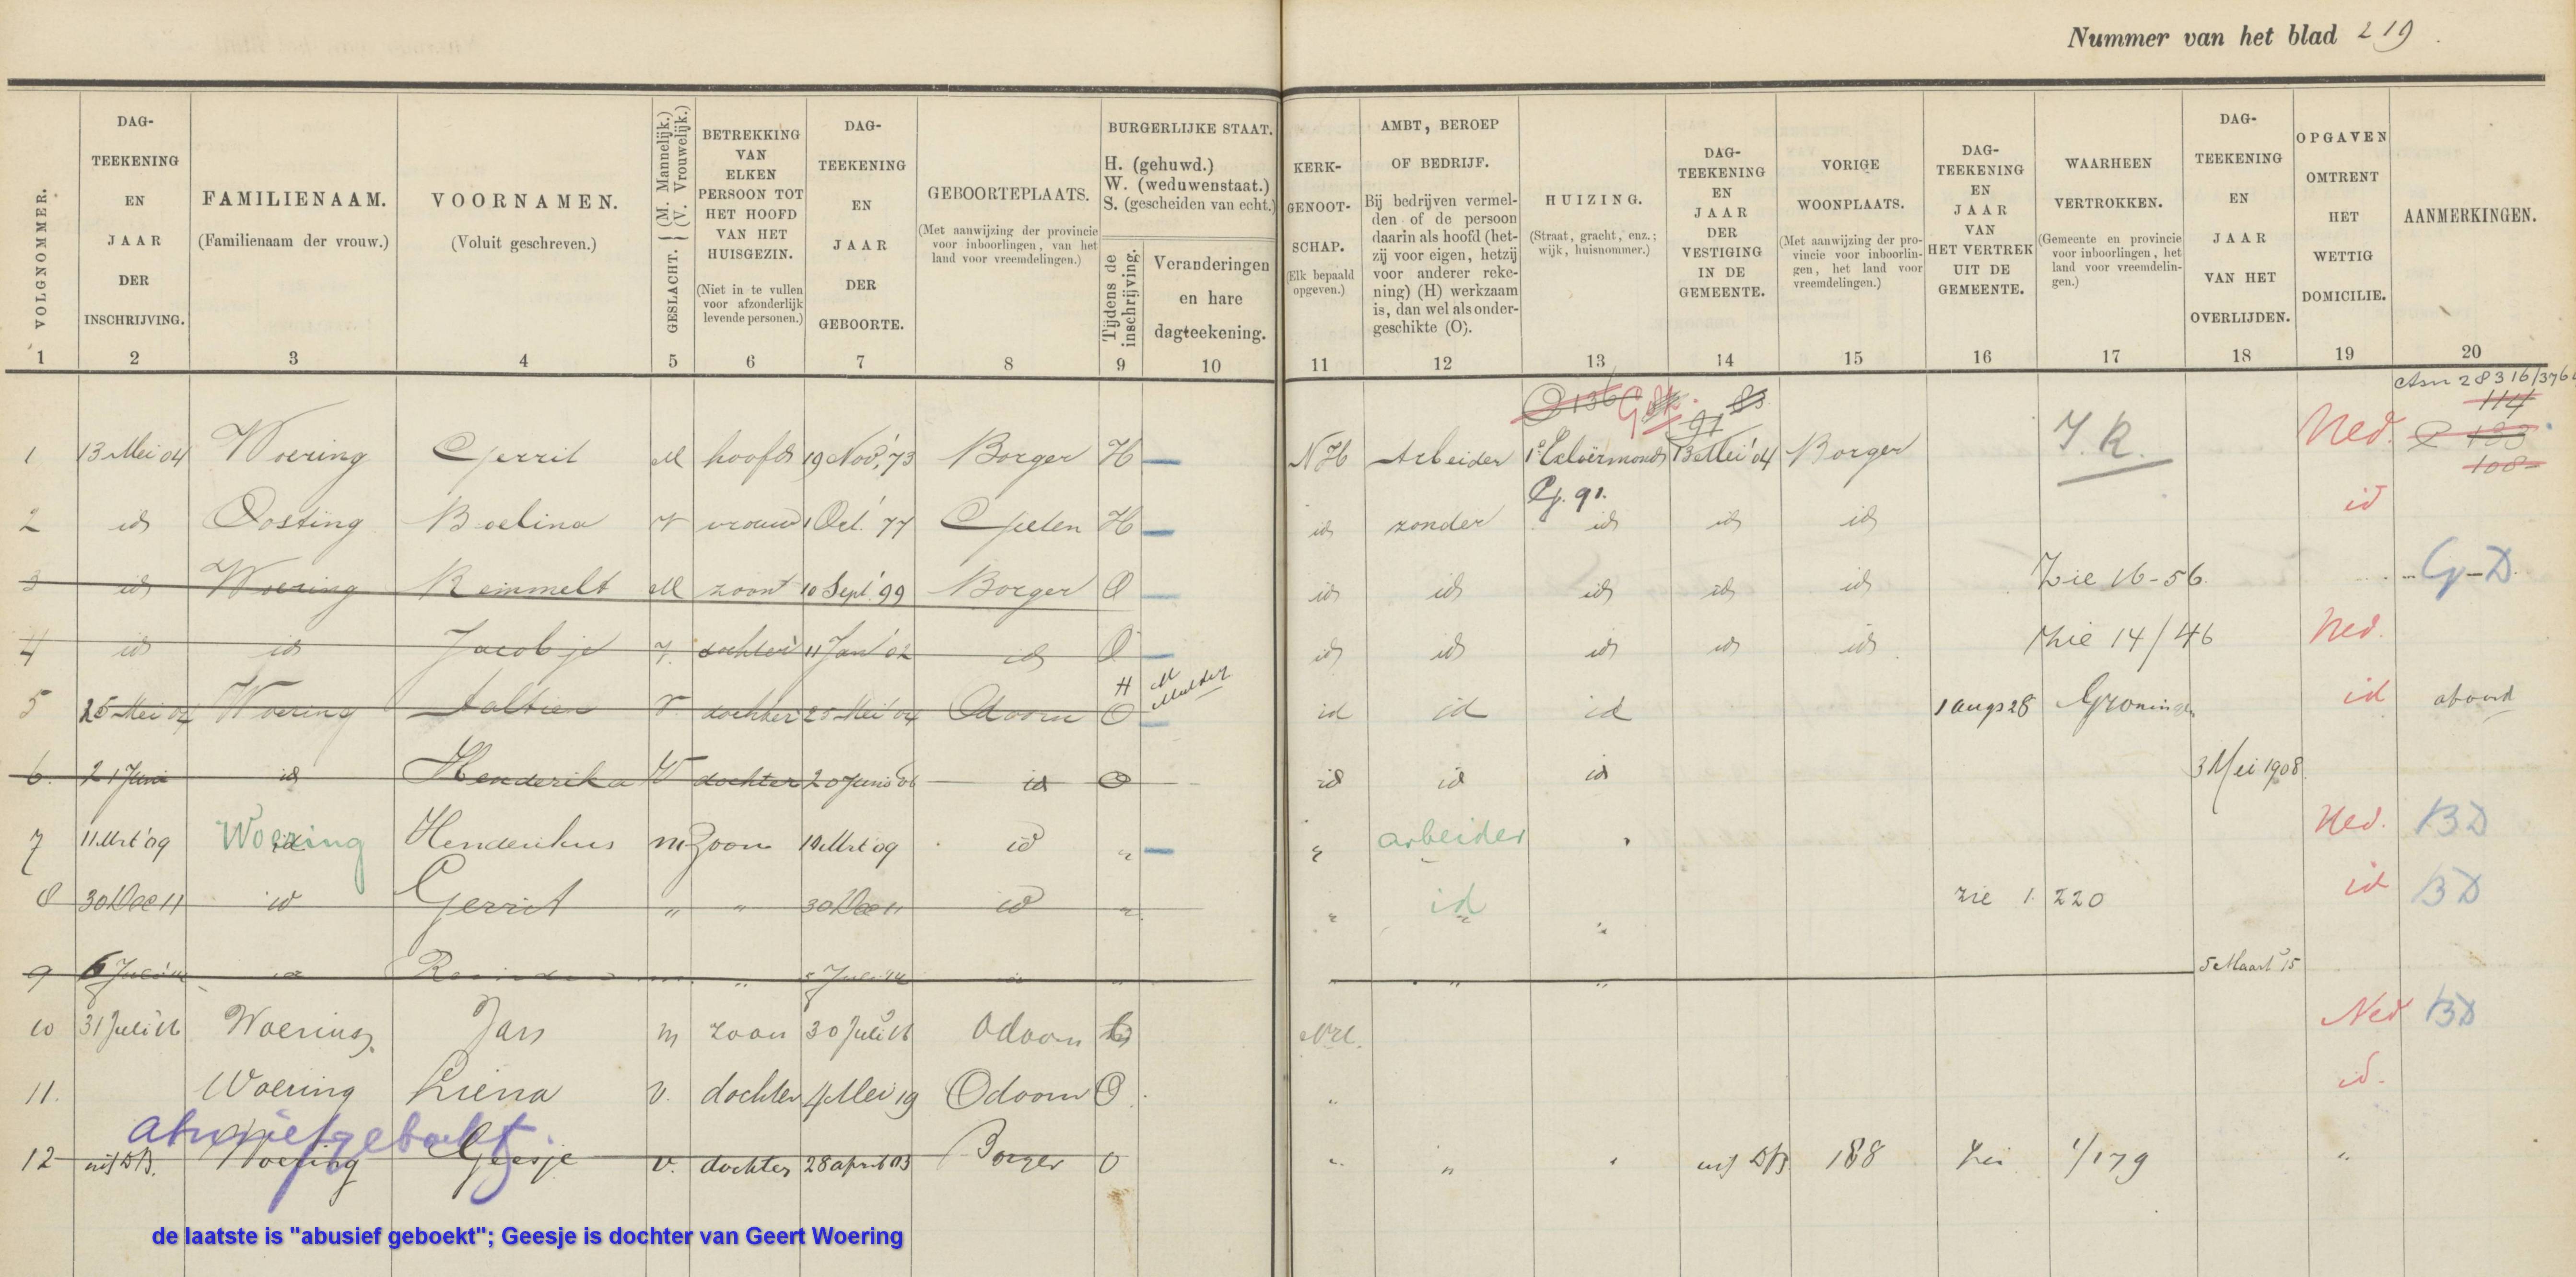 Nummer van het blad 219
VOLGNOMMER.
1
DAG-
TEEKENING
EN
JAAR
DER
INSCHRIJVING.
2
FAMILIENAAM.
(Familienaam der vrouw.)
3
VOORNAMEN.
(Voluit geschreven.)
4
GESLACHT. { (M. Mannelijk.)
(V. Vrouwelijk.)
5
BETREKKING
VAN
ELKEN
PERSOON TOT
HET HOOFD
VAN HET
HUISGEZIN.
(Niet in te vullen
voor afzonderlijk
levende personen.)
6
DAG-
TEEKENING
EN
JAAR
DER
GEBOORTE.
7
GEBOORTEPLAATS.
(Met aanwijzing der provincie
voor inboorlingen, van het
land voor vreemdelingen.)
8
BURGERLIJKE STAAT.
H. (gehuwd.)
W. (weduwenstaat.)
S. (gescheiden van echt.)
Tijdens de
inschrijving.
9
Veranderingen
en hare
dagteekening.
10
KERK-
GENOOT-
SCHAP.
(Elk bepaald
opgeven.)
11
AMBT, BEROEP
OF BEDRIJF.
Bij bedrijven vermel-
den of de persoon
daarin als hoofd (het-
zij voor eigen, hetzij
voor anderer reke-
ning) (H) werkzaam
is, dan wel als onder-
geschikte (O).
12
HUIZING.
(Straat, gracht, enz.;
wijk, huisnommer.)
13
DAG-
TEEKENING
EN
JAAR
DER
VESTIGING
IN DE
GEMEENTE.
14
VORIGE
WOONPLAATS.
(Met aanwijzing der pro-
vincie voor inboorlin-
gen, het land voor
vreemdelingen.)
15
DAG-
TEEKENING
EN
JAAR
VAN
HET VERTREK
UIT DE
GEMEENTE.
16
WAARHEEN
VERTROKKEN.
(Gemeente en provincie
voor inboorlingen, het
land voor vreemdelin-
gen.)
17
DAG-
TEEKENING
EN
JAAR
VAN HET
OVERLIJDEN.
18
OPGAVEN
OMTRENT
HET
WETTIG
DOMICILIE.
19
AANMERKINGEN.
20
136 91 83 114
1 13 Mei 04 Woering Gerrit M hoofd 19 Nov. '73 Borger H NH Arbeider 1e Exloërmond 13 Mei '04 Borger Ned.
108
G. 91.
2 id Oosting Roelina V vrouw 1 Oct. '77 Gieten H id zonder id id id id
3 id Woering Remmelt M zoon 10 Sept. '99 Borger O id id id id id Zie 16-56. G-D.
4 id id Jacobje V. dochter 11 Jan '02 id O id id id id id Zie 14/46 Ned.
H M Mulder
5 25 Mei 04 Woering Aaltien V dochter 25 Mei 04 Odoorn O id id id 1 aug 28 Groningen id
6. 21 Juni id Henderika V dochter 20 Juni 06 id O id id id 3 Mei 1908
7 11 Mrt '09 Woering Henderikus m Zoon 10 Mrt 09 id " " arbeider Ned. BD
8 30 Dec 11 id Gerrit " " 30 Dec 11 id " " id " zie 1. 220 id BD
9 6 Juli 14 id m. " 5 Juli 14 " " " " 5 Maart '15
10 31 Juli '16 Woering Jan m zoon 30 Juli 16 Odoorn O NH. Ned BD
11. Woering Liena V. dochter 4 Mei 19 Odoorn O " id.
abusief geboekt.
12 uit D/B. Woering Geesje v. dochter 28 april 03 Borger O " " " uit D/B 188 Zie 1/179 "
de laatste is "abusief geboekt"; Geesje is dochter van Geert Woering